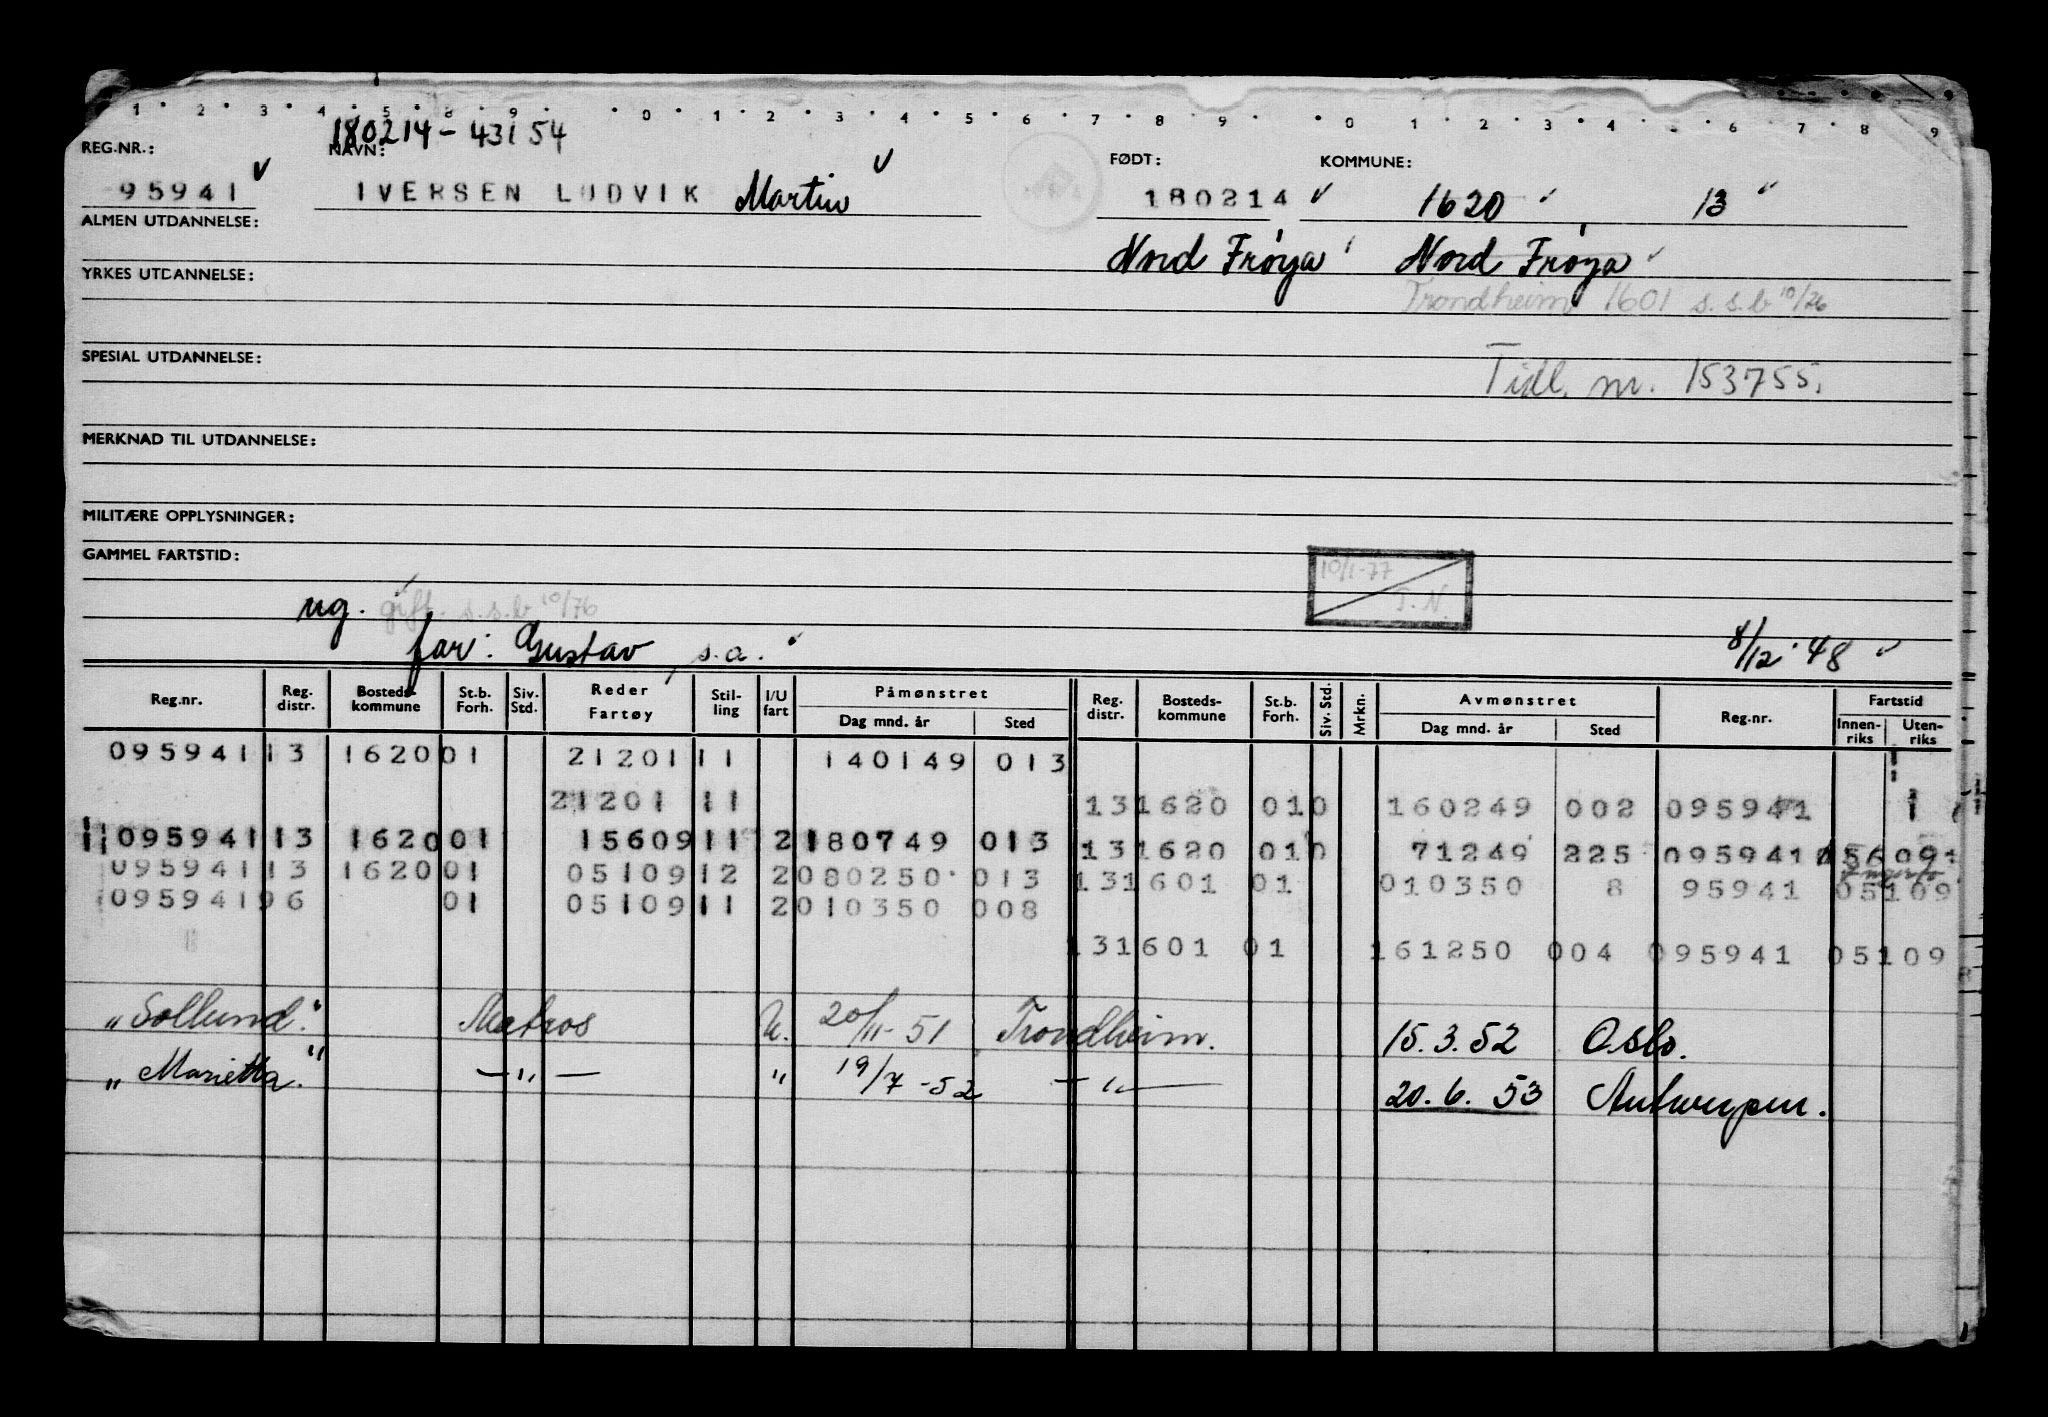 1 2 3 4 5 8 9 0 1 2 3 4 5 6 7 8 9 0 1 2 3 4 5 6 7 8 9
180214-43154
REG.NR.: NAVN: FØDT: KOMMUNE:
95941 IVERSEN LUDVIK Martin 180214 1620 13
ALMEN UTDANNELSE:
Nord Frøya Nord Frøya
YRKES UTDANNELSE:
Trondheim 1601 s.s.b 10/26
SPESIAL UTDANNELSE:
Tidl. nr. 153755.
MERKNAD TIL UTDANNELSE:
MILITÆRE OPPLYSNINGER:
GAMMEL FARTSTID:
10/1-77
T.N.
ug. gift. s.s.b 10/76
far: Gustav, s.a. 8/12 48
Reg.nr. Reg. distr. Bosteds-kommune St.b. Forh. Siv. Std. Reder Fartøy Stil-ling I/U fart Påmønstret Dag mnd. år Sted Reg. distr. Bosteds-kommune St.b. Forh. Siv. Std. Mrkn. Avmønstret Dag mnd. år Sted Reg.nr. Fartstid Innen-riks Uten-riks
095941 13 1620 01 21201 11 140149 013
21201 11 13 1620 010 160249 002 095941 1
095941 13 1620 01 15609 11 2 180749 013 13 1620 010 71249 225 095941
095941 13 1620 01 05109 12 2 080250 013 13 1601 01 010350 8 95941 05109
095941 96 01 05109 11 2 010350 008
13 1601 01 161250 004 095941 05109
"Sollund." Matros U. 20/11-51 Trondheim. 15.3.52 Oslo.
"Marietta." —"— " 19/7-52 —"— 20.6.53 Antwerpen.